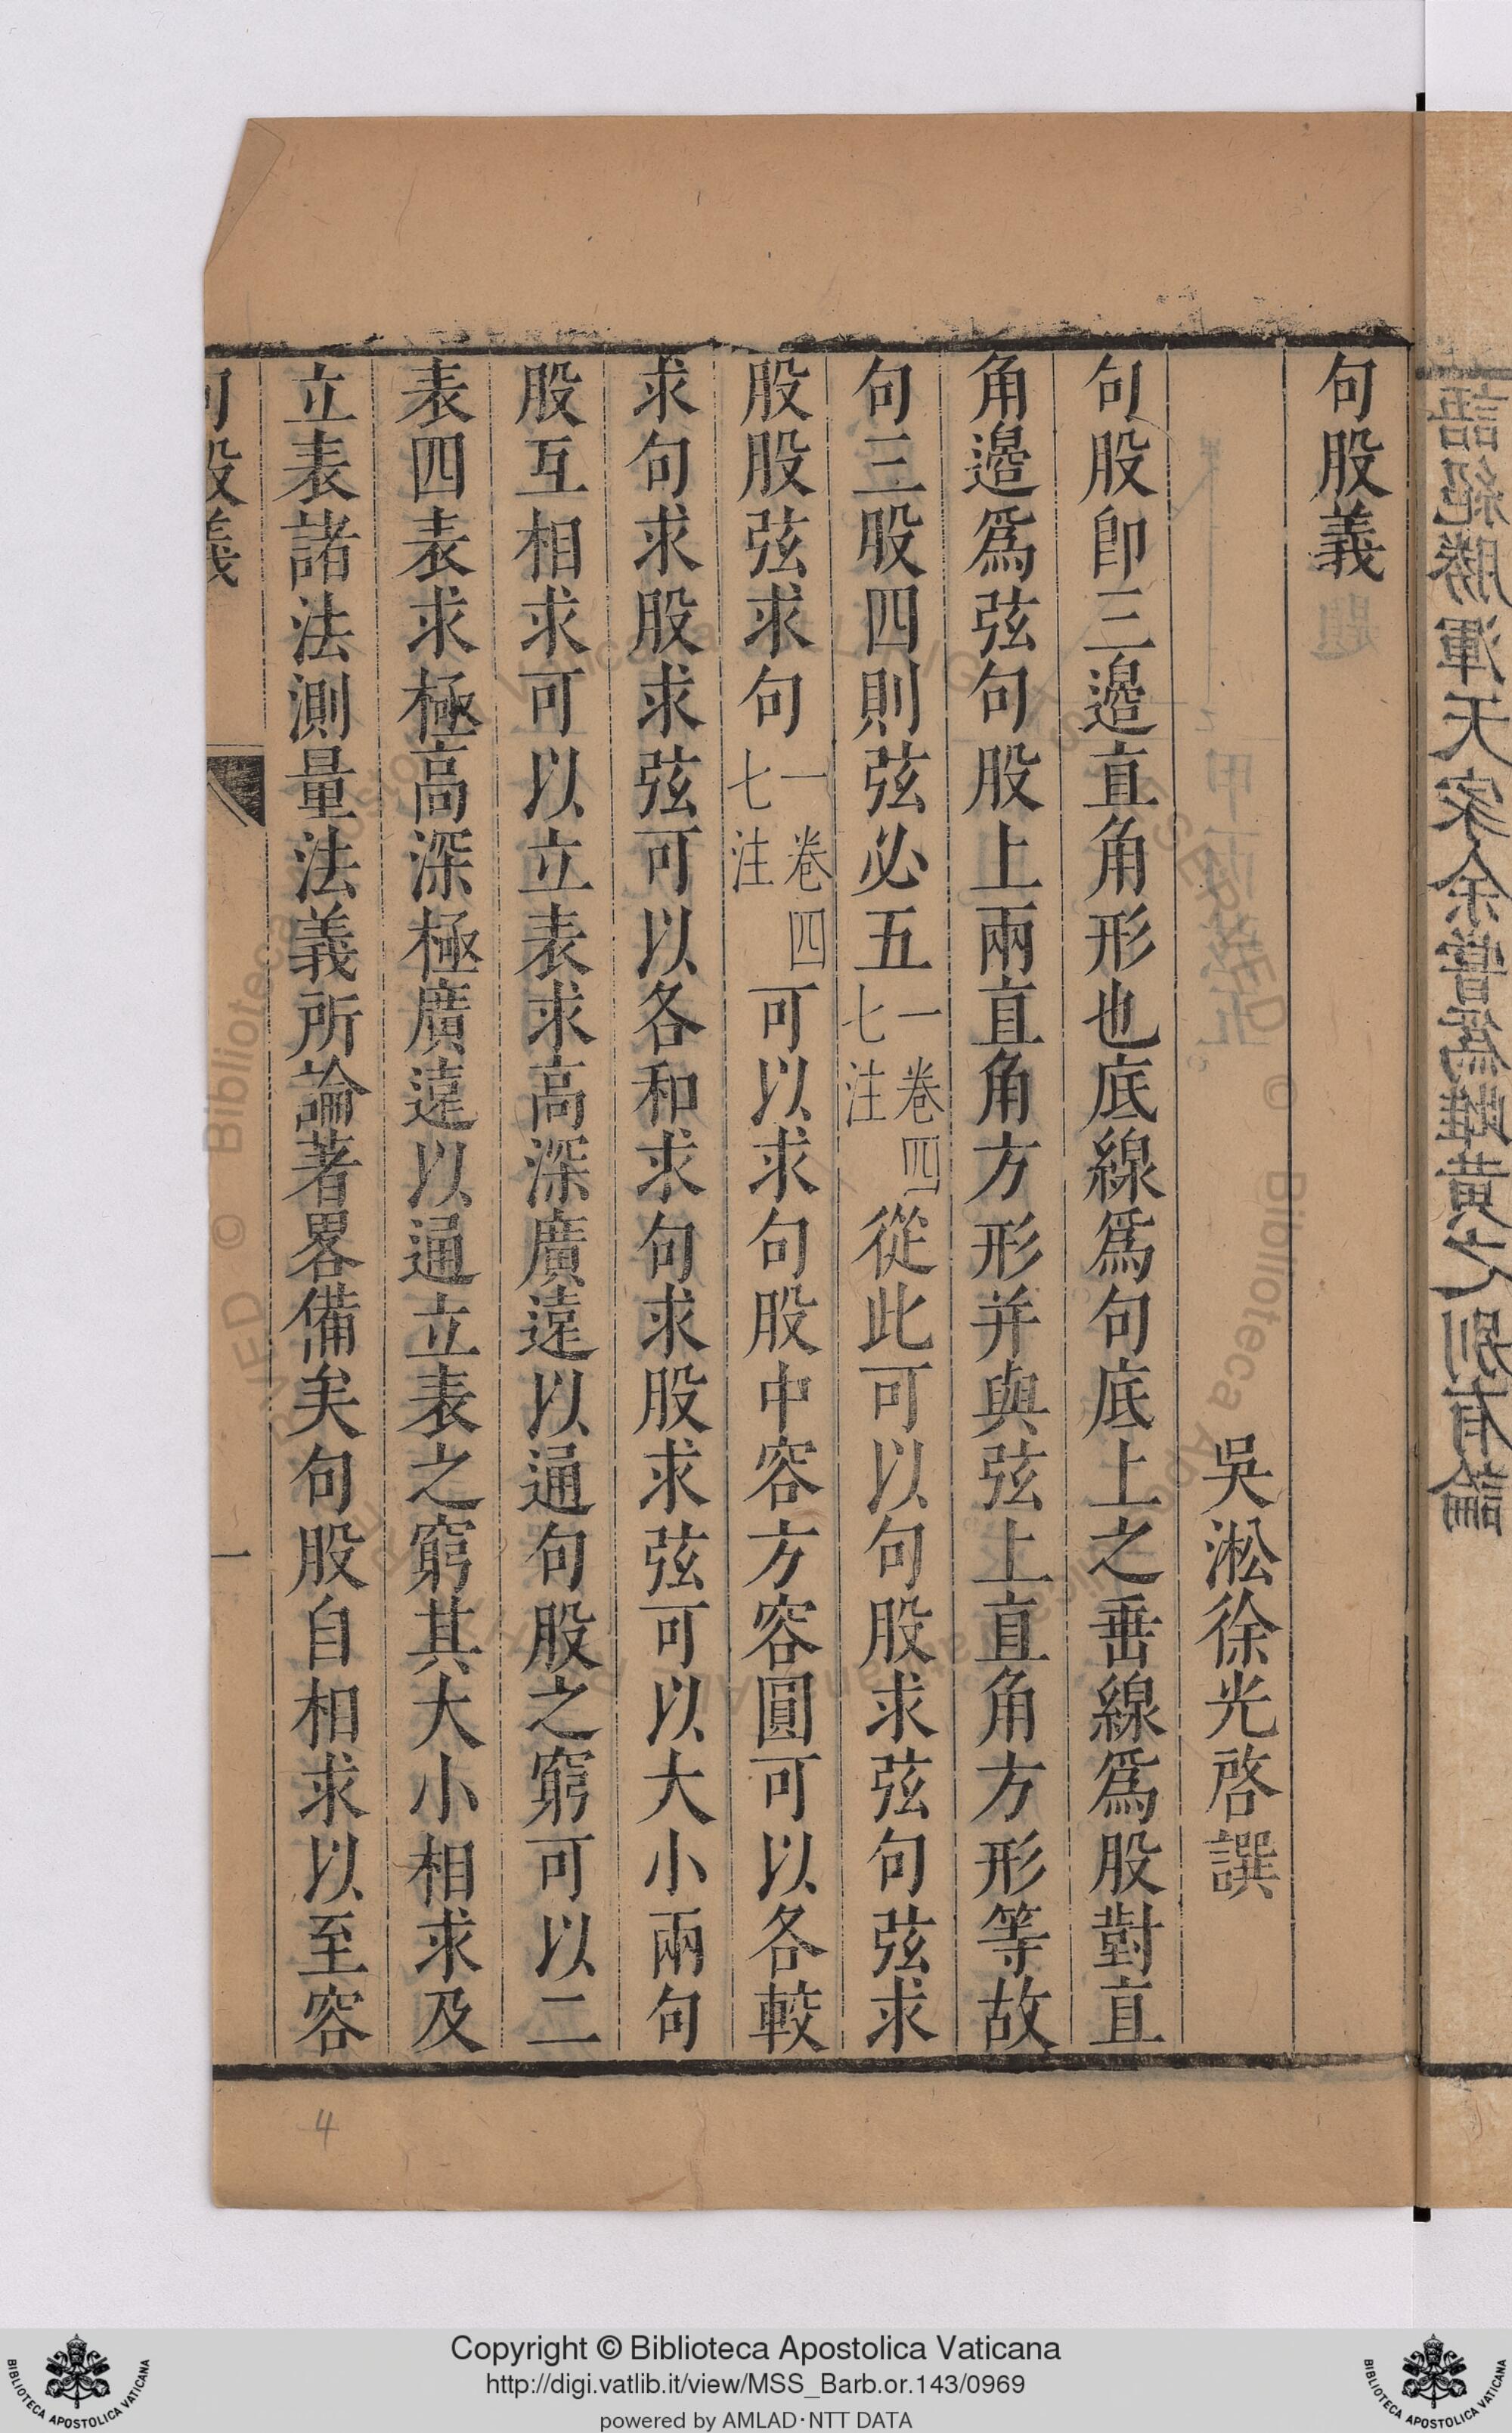 句股義
吳淞徐光啓譔
句股卽三邉直角形也底線爲句底上之垂線爲股對直
角邉爲弦句股上兩直角方形并與弦上直角方形等故
句三股四則弦必五一卷四七注從此可以句股求弦句弦求
股股弦求句一卷四七注可以求句股中容方容圓可以各較
求句求股求弦可以各和求句求股求弦可以大小兩句
股互相求可以立表求高深廣遠以通句股之窮可以二
表四表求極高深極廣遠以通立表之窮其大小相求及
立表諸法測量法義所論著畧備矣句股自相求以至容
句股義
一
4
Copyright © Biblioteca Apostolica Vaticana
http://digi.vatlib.it/view/MSS_Barb.or.143/0969
powered by AMLAD·NTT DATA
BIBLIOTECA APOSTOLICA VATICANA
BIBLIOTECA APOSTOLICA VATICANA